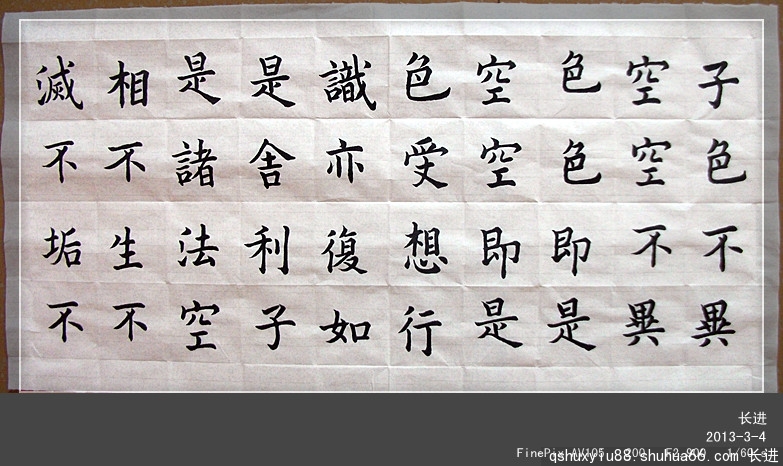 子色不異
空空不異
色色即是
空空即是
色受想行
識亦復如
是舍利子
是諸法空
相不生不
滅不垢不
长进
2013-3-4
FinePix
长进